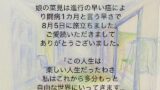 娘の菜見は進行の早い癌により
闘病1カ月と言う早さで
8月5日に旅立ちました。
ご愛読いただきまして
ありがとうございました。
「この人生は
楽しい人生だったわさ
私はこれから多分もっと
自由な世界にいってきます